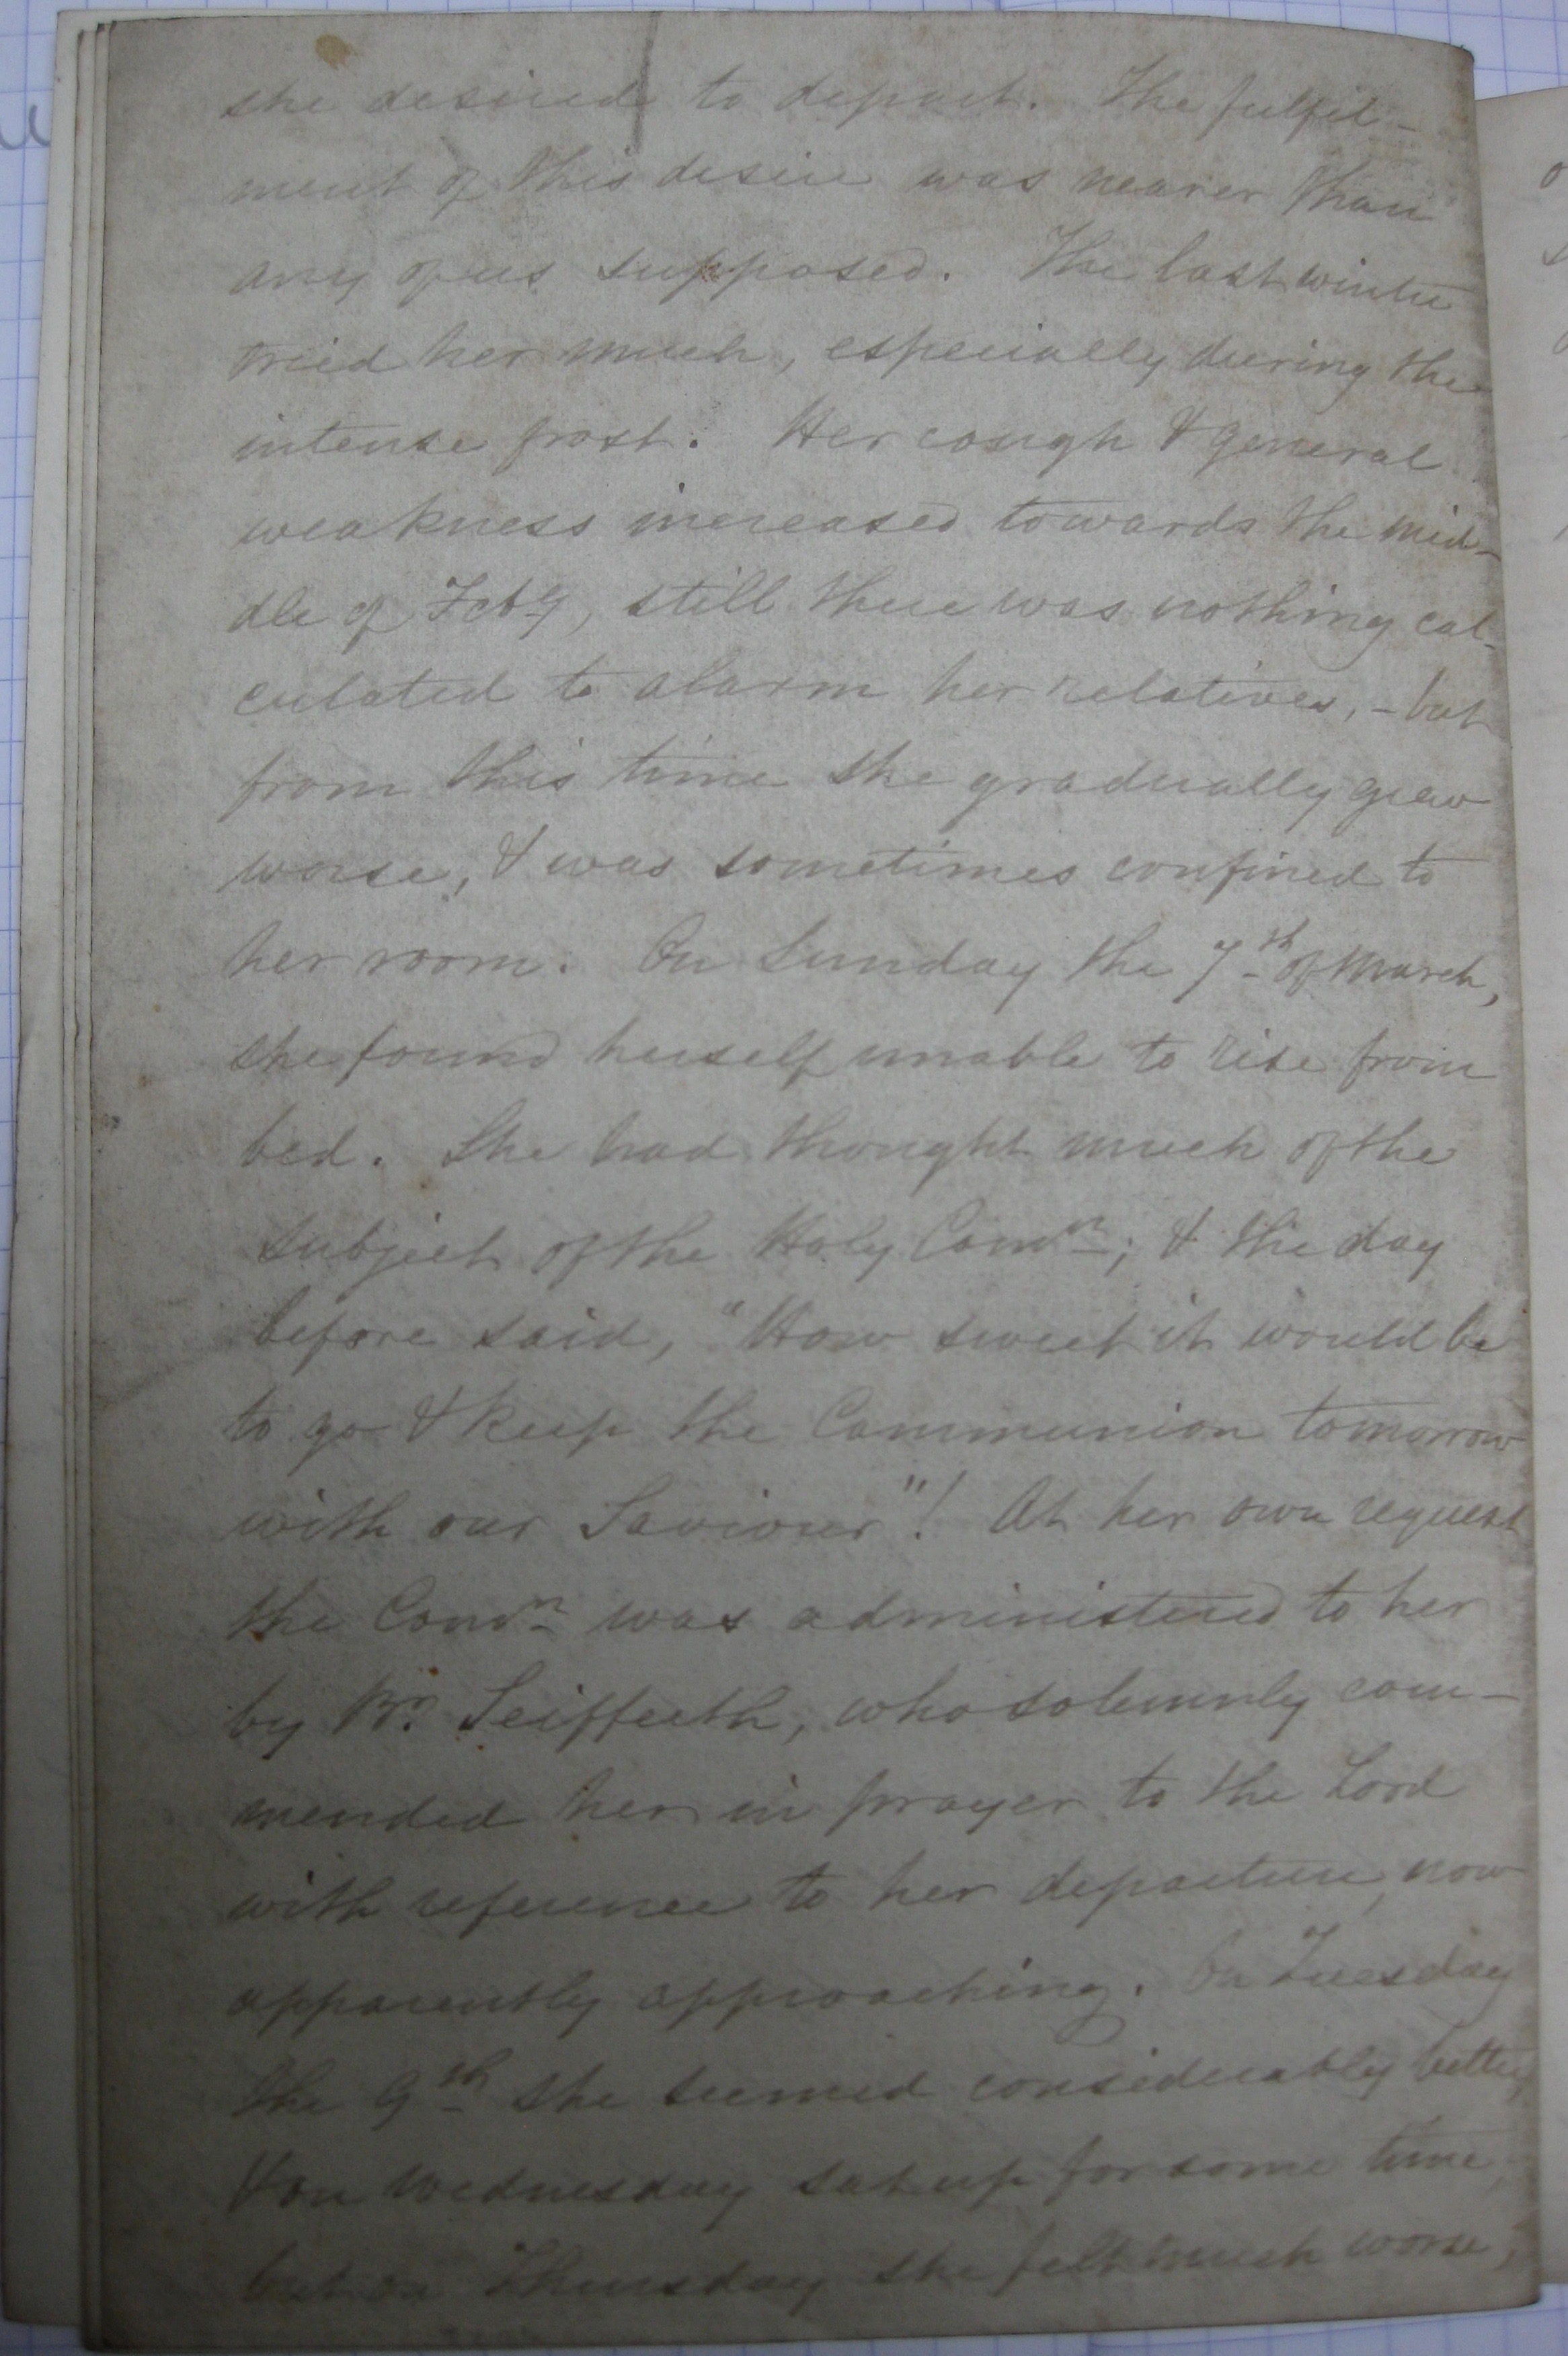 she desired to depart. The fulfil-
ment of this desire was nearer than
any of us supposed. The last winter
tried her much, especially during the
intense frost. Her cough & general
weakness increased towards the mid-
dle of Feby, still there was nothing cal-
culated to alarm her relatives, - but
from this time she gradually grew
worse, & was sometimes confined to
her room. On Sunday the 7th of March,
she found herself unable to rise from
bed. She had thought much of the
subject of the Holy Comn; & the day
before said, "How sweet it would be
to go & keep the Communion tomorrow
with our Saviour"! At her own request
the Comn was administered to her
by Br. Seifferth, who solemnly com-
mended her in prayer to the Lord
with reference to her departure, now
apparently approaching. On Tuesday
the 9th she seemed considerably better,
& on Wednesday sat up for some time,
but on Thursday she felt much worse,